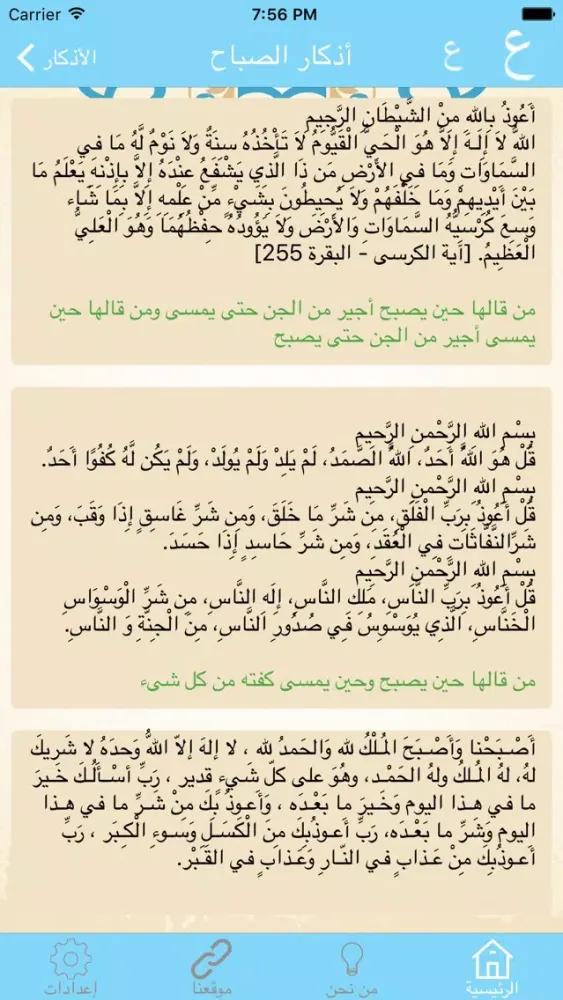 Carrier 7:56 PM
الأذكار أذكار الصباح ع ع
أَعُوذُ بِاللهِ مِنْ الشَّيْطَانِ الرَّجِيمِ
اللهُ لاَ إِلَـهَ إِلاَّ هُوَ الْحَيُّ الْقَيُّومُ لاَ تَأْخُذُهُ سِنَةٌ وَلاَ نَوْمٌ لَّهُ مَا فِي
السَّمَاوَاتِ وَمَا فِي الأَرْضِ مَن ذَا الَّذِي يَشْفَعُ عِنْدَهُ إِلاَّ بِإِذْنِهِ يَعْلَمُ مَا
بَيْنَ أَيْدِيهِمْ وَمَا خَلْفَهُمْ وَلاَ يُحِيطُونَ بِشَيْءٍ مِّنْ عِلْمِهِ إِلاَّ بِمَا شَاء
وَسِعَ كُرْسِيُّهُ السَّمَاوَاتِ وَالأَرْضَ وَلاَ يَؤُودُهُ حِفْظُهُمَا وَهُوَ الْعَلِيُّ
الْعَظِيمُ. [آية الكرسى - البقرة 255]
من قالها حين يصبح أجير من الجن حتى يمسى ومن قالها حين
يمسى أجير من الجن حتى يصبح
بِسْمِ اللهِ الرَّحْمنِ الرَّحِيم
قُلْ هُوَ اللَّهُ أَحَدٌ، اللَّهُ الصَّمَدُ، لَمْ يَلِدْ وَلَمْ يُولَدْ، وَلَمْ يَكُن لَّهُ كُفُوًا أَحَدٌ.
بِسْمِ اللهِ الرَّحْمنِ الرَّحِيم
قُلْ أَعُوذُ بِرَبِّ الْفَلَقِ، مِن شَرِّ مَا خَلَقَ، وَمِن شَرِّ غَاسِقٍ إِذَا وَقَبَ، وَمِن
شَرِّالنَّفَّاثَاتِ فِي الْعُقَدِ، وَمِن شَرِّ حَاسِدٍ إِذَا حَسَدَ.
بِسْمِ اللهِ الرَّحْمنِ الرَّحِيم
قُلْ أَعُوذُ بِرَبِّ النَّاسِ، مَلِكِ النَّاسِ، إِلَهِ النَّاسِ، مِن شَرِّ الْوَسْوَاسِ
الْخَنَّاسِ، الَّذِي يُوَسْوِسُ فِي صُدُورِ النَّاسِ، مِنَ الْجِنَّةِ وَ النَّاسِ.
من قالها حين يصبح وحين يمسى كفته من كل شىء
أَصْـبَحْنا وَأَصْـبَحَ المُـلْكُ لله وَالحَمدُ لله ، لا إلهَ إلاّ اللّهُ وَحدَهُ لا شَريكَ
لهُ، لهُ المُـلكُ ولهُ الحَمْـد، وهُوَ على كلّ شَيءٍ قدير ، رَبِّ أسْـأَلُـكَ خَـيرَ
ما في هـذا اليوم وَخَـيرَ ما بَعْـدَه ، وَأَعـوذُ بِكَ مِنْ شَـرِّ ما في هـذا
اليوم وَشَرِّ ما بَعْـدَه، رَبِّ أَعـوذُبِكَ مِنَ الْكَسَـلِ وَسـوءِ الْكِـبَر ، رَبِّ
أَعـوذُبِكَ مِنْ عَـذابٍ في النّـارِ وَعَـذابٍ في القَـبْر.
الرئيسية من نحن موقعنا إعدادات